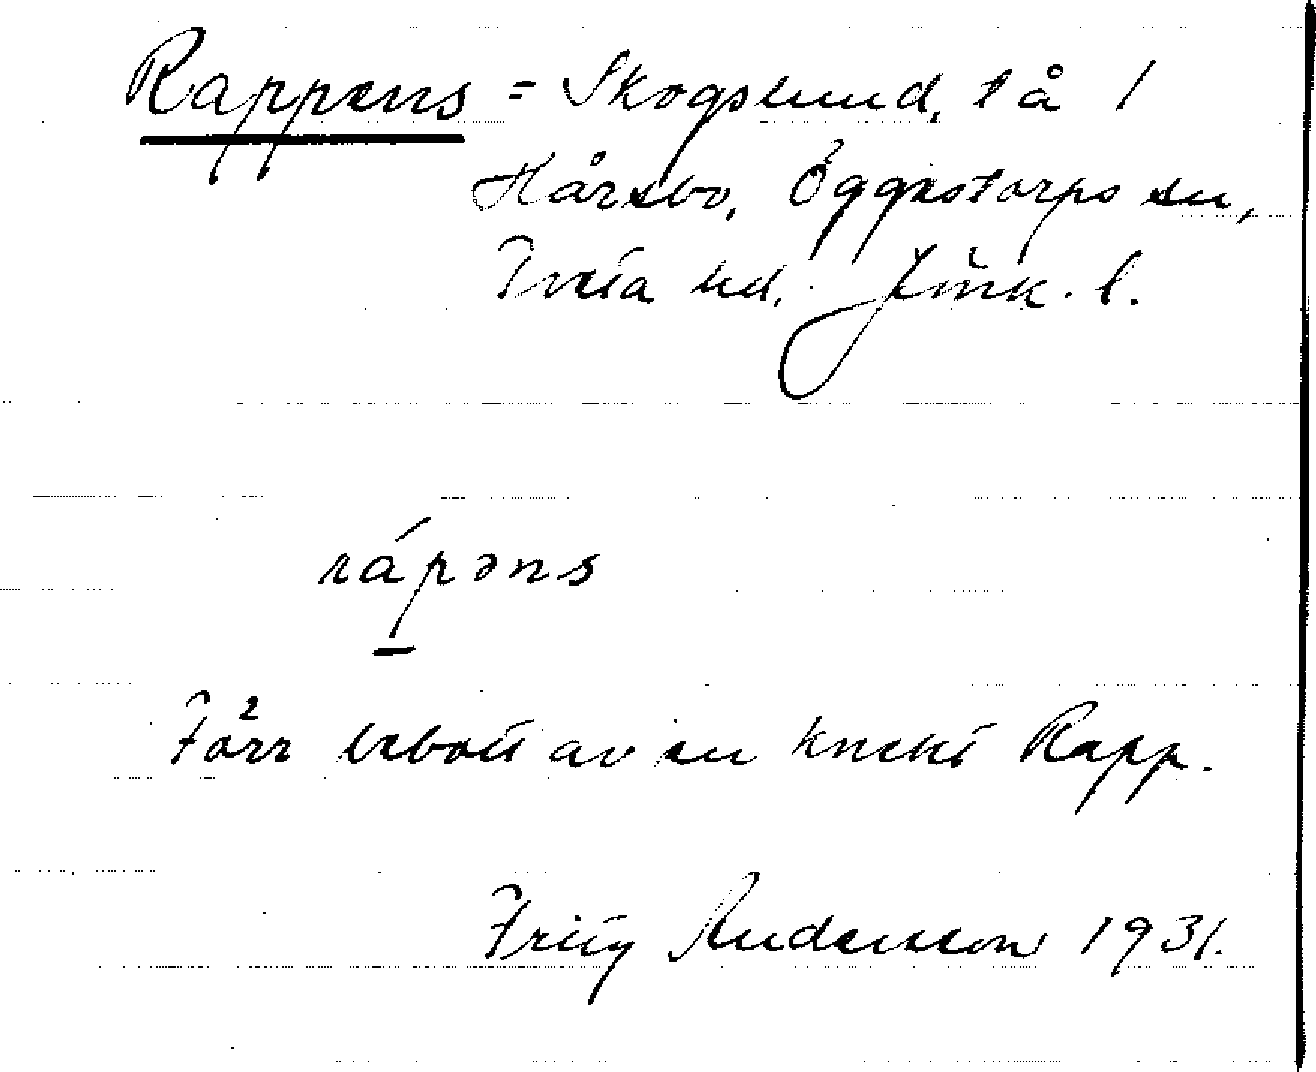 Rappens = Skogslund, tå 1
Hårsbo, Öggestorps sn,
Tveta hd. Jönk. l.
rápəns
Förr bebott av en knekt Rapp.
Fritz Andersson 1931.